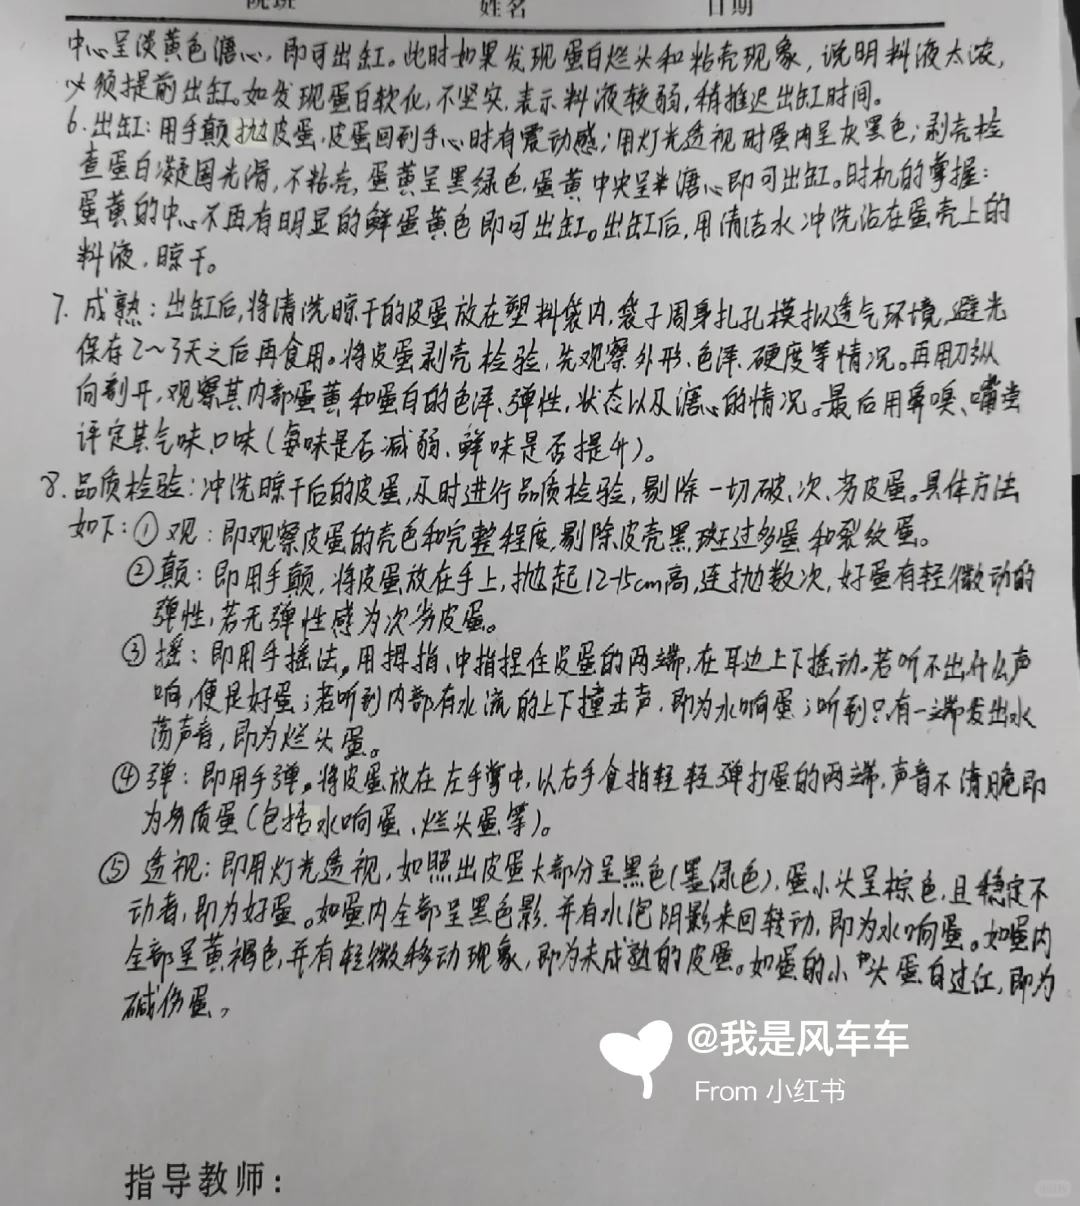 院班 姓名 日期
中心呈淡黄色溏心,即可出缸。此时如果发现蛋白烂头和粘壳现象,说明料液太浓,
必须提前出缸。如发现蛋白软化,不坚实,表示料液较弱,稍推迟出缸时间。
6.出缸:用手颠抛皮蛋,皮蛋回到手心时有震动感;用灯光透视时蛋内呈灰黑色;剥壳检
查蛋白凝固光滑,不粘壳,蛋黄呈黑绿色,蛋黄中央呈溏心即可出缸。时机的掌握:
蛋黄的中心不再有明显的鲜蛋黄色即可出缸。出缸后,用清洁水冲洗沾在蛋壳上的
料液,晾干。
7.成熟:出缸后,将清洗晾干的皮蛋放在塑料袋内,袋子周身扎孔模拟透气环境,避光
保存2~3天之后再食用。将皮蛋剥壳检验,先观察外形、色泽、硬度等情况。再用刀纵
向剖开,观察其内部蛋黄和蛋白的色泽、弹性,状态以及溏心的情况。最后用鼻嗅、嘴尝
评定其气味、口味(氨味是否减弱、鲜味是否提升)。
8.品质检验:冲洗晾干后的皮蛋,及时进行品质检验,剔除一切破、次、劣皮蛋。具体方法
如下:①观:即观察皮蛋的壳色和完整程度,剔除皮壳黑斑过多蛋和裂纹蛋。
②颠:即用手颠,将皮蛋放在手上,抛起12-15cm高,连抛数次,好蛋有轻微动的
弹性,若无弹性感为次劣皮蛋。
③摇:即用手摇法。用拇指、中指捏住皮蛋的两端,在耳边上下摇动。若听不出什么声
响,便是好蛋;若听到内部有水流的上下撞击声,即为水响蛋;听到只有一端发出水
荡声音,即为烂头蛋。
④弹:即用手弹。将皮蛋放在左手掌中,以右手食指轻轻弹打蛋的两端,声音不清脆即
为劣质蛋(包括水响蛋、烂头蛋等)。
⑤透视:即用灯光透视,如照出皮蛋大部分呈黑色(墨绿色),蛋小头呈棕色,且稳定不
动者,即为好蛋。如蛋内全部呈黑色影,并有水泡阴影来回转动,即为水响蛋。如蛋内
全部呈黄褐色,并有轻微移动现象,即为未成熟的皮蛋。如蛋的小头蛋白过红,即为
碱伤蛋。
@我是风车车
From 小红书
指导教师: